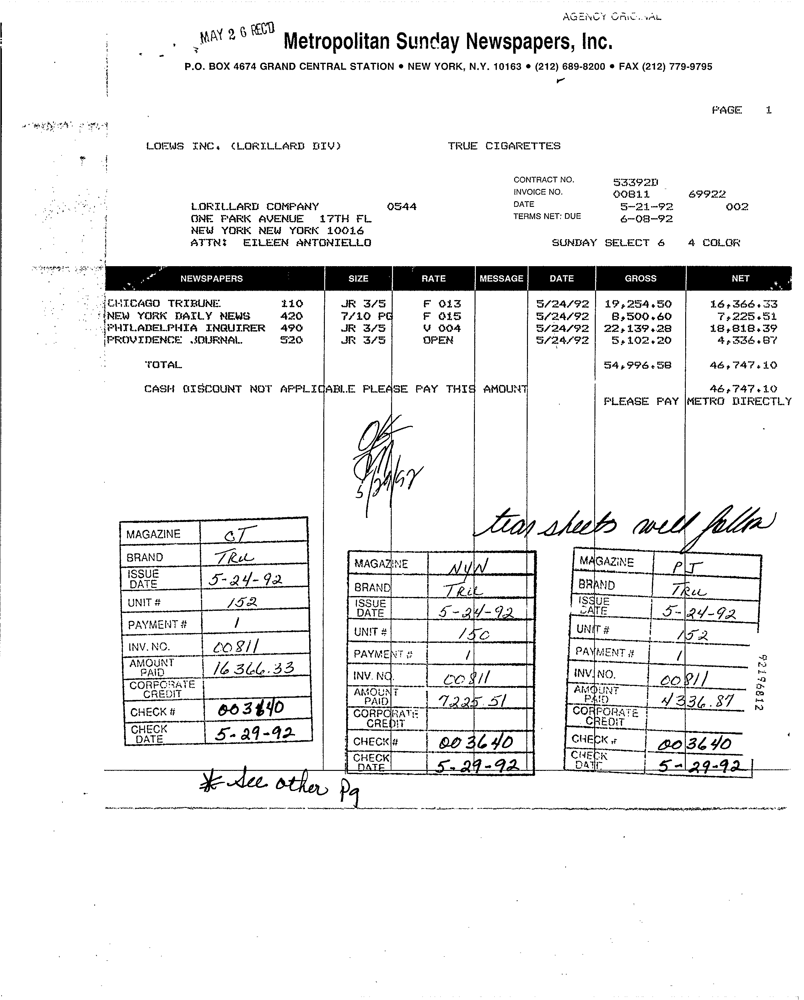 AGENCY ORIGINAL
MAY 26 REC'D
Metropolitan Sunday Newspapers, Inc.
P.O. BOX 4674 GRAND CENTRAL STATION • NEW YORK, N.Y. 10163 • (212) 689-8200 • FAX (212) 779-9795
PAGE 1
LOEWS INC. (LORILLARD DIV) TRUE CIGARETTES
CONTRACT NO. 53392D
INVOICE NO. 00811 69922
DATE 5-21-92 002
TERMS NET: DUE 6-08-92
LORILLARD COMPANY 0544
ONE PARK AVENUE 17TH FL
NEW YORK NEW YORK 10016
ATTN: EILEEN ANTONIELLO
SUNDAY SELECT 6 4 COLOR
NEWSPAPERS SIZE RATE MESSAGE DATE GROSS NET
CHICAGO TRIBUNE 110 JR 3/5 F 013 5/24/92 19,254.50 16,366.33
NEW YORK DAILY NEWS 420 7/10 PG F 015 5/24/92 8,500.60 7,225.51
PHILADELPHIA INQUIRER 490 JR 3/5 V 004 5/24/92 22,139.28 18,818.39
PROVIDENCE JOURNAL 520 JR 3/5 OPEN 5/24/92 5,102.20 4,336.87
TOTAL 54,996.58 46,747.10
CASH DISCOUNT NOT APPLICABLE PLEASE PAY THIS AMOUNT 46,747.10
PLEASE PAY METRO DIRECTLY
OK
5/29/92
tear sheets will follow
MAGAZINE CT
BRAND TRUE
ISSUE DATE 5-24-92
UNIT # 152
PAYMENT # 1
INV. NO. 00811
AMOUNT PAID 16366.33
CORPORATE CREDIT
CHECK # 003640
CHECK DATE 5-29-92
MAGAZINE NYN
BRAND TRUE
ISSUE DATE 5-24-92
UNIT # 150
PAYMENT # 1
INV. NO. 00811
AMOUNT PAID 7225.51
CORPORATE CREDIT
CHECK # 003640
CHECK DATE 5-29-92
MAGAZINE PJ
BRAND TRUE
ISSUE DATE 5-24-92
UNIT # 152
PAYMENT # 1
INV. NO. 00811
AMOUNT PAID 4336.87
CORPORATE CREDIT
CHECK # 003640
CHECK DATE 5-29-92
92196812
* See other Pg